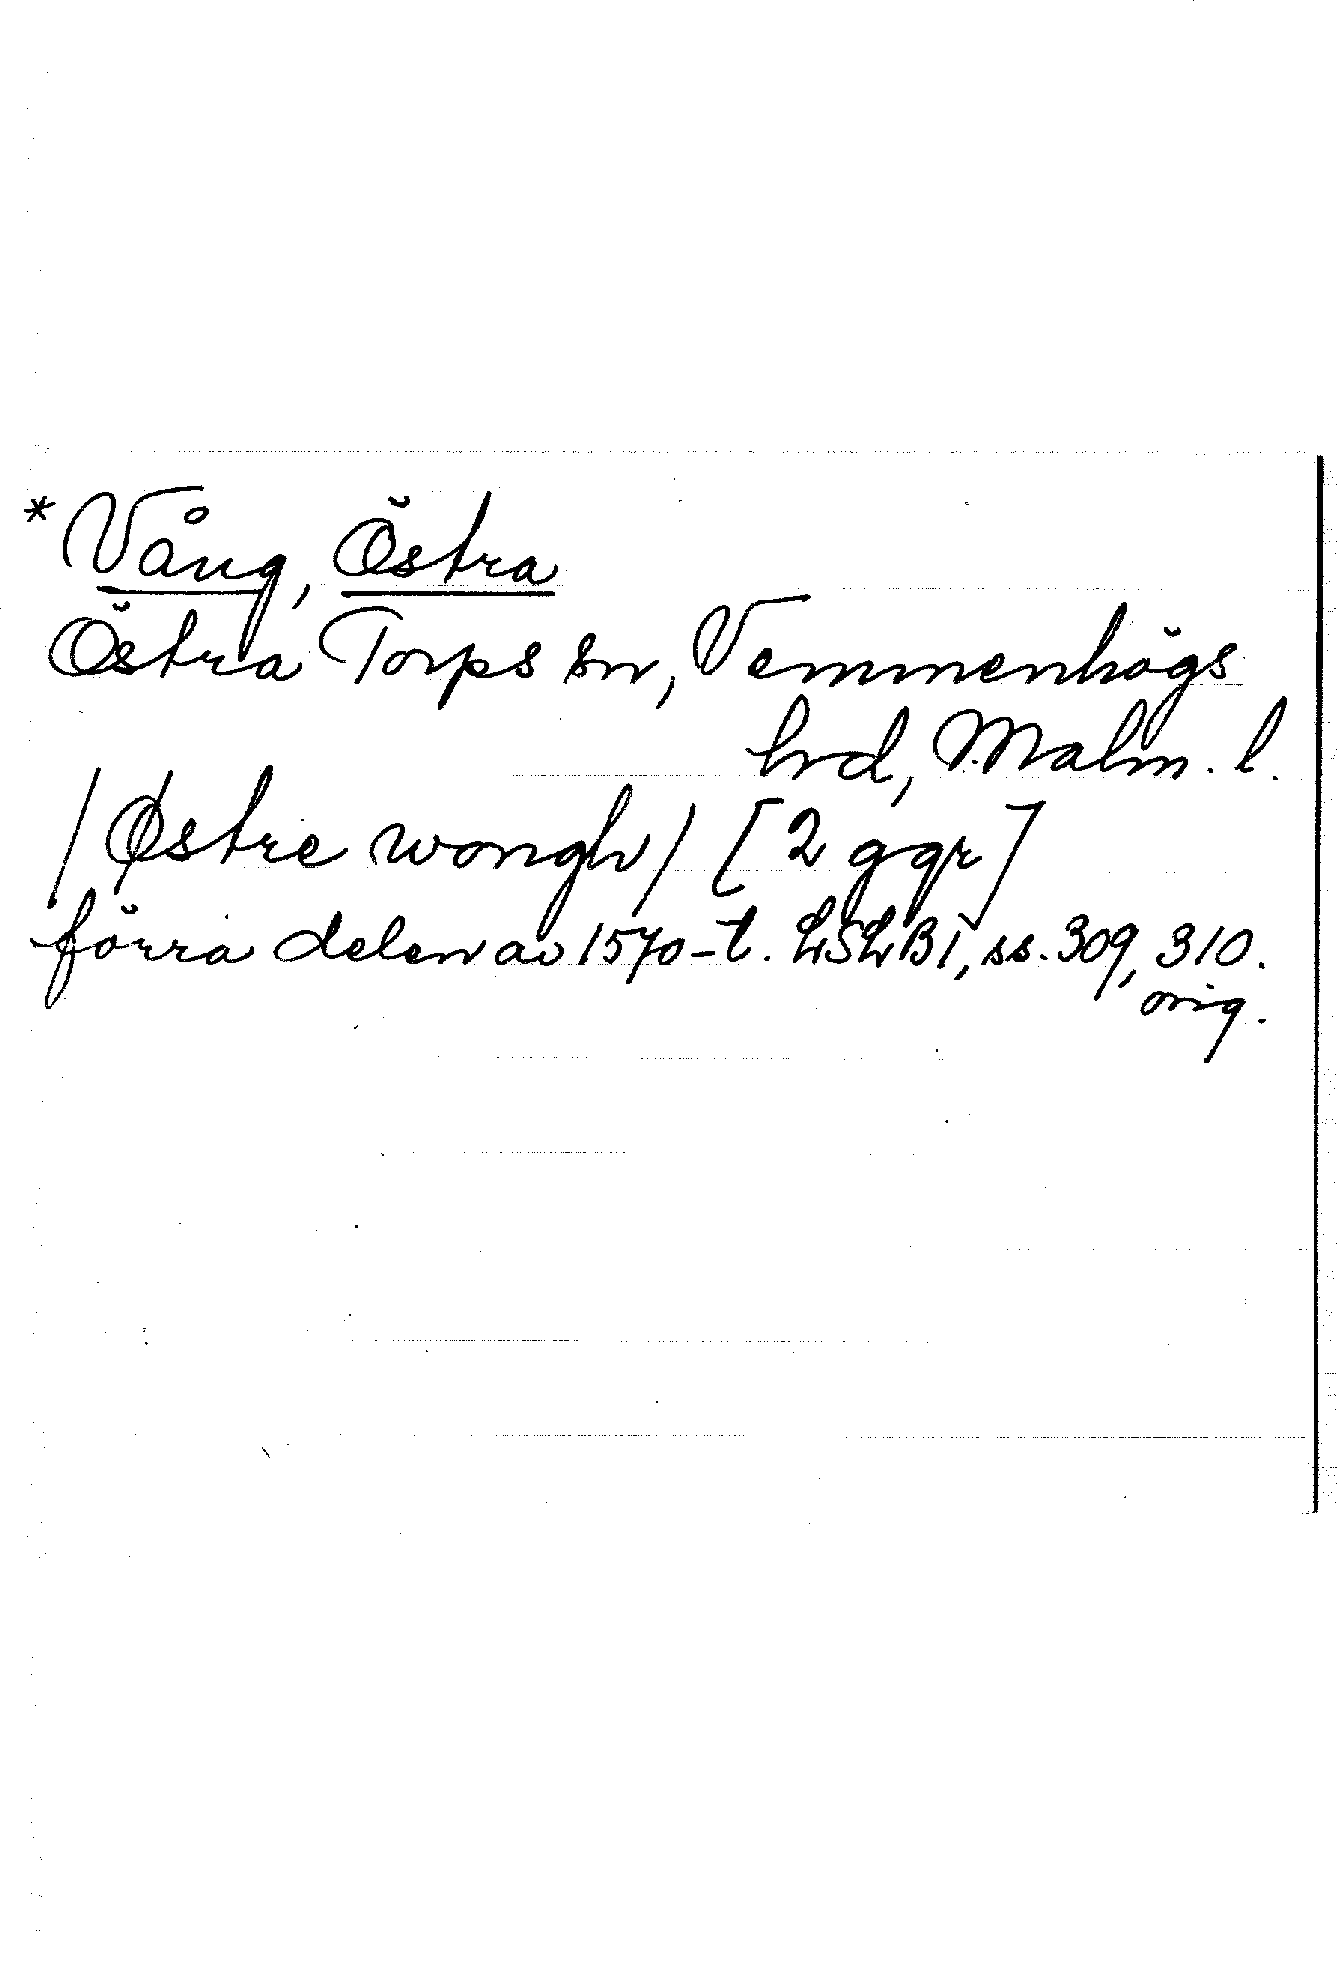 *Vång, Östra
Östra Torps sn, Vemmenhögs
hrd, Malm. l.
/Østre wongh/ [2 ggr]
förra delen av 1570-t. LSLB1, ss. 309, 310.
orig.